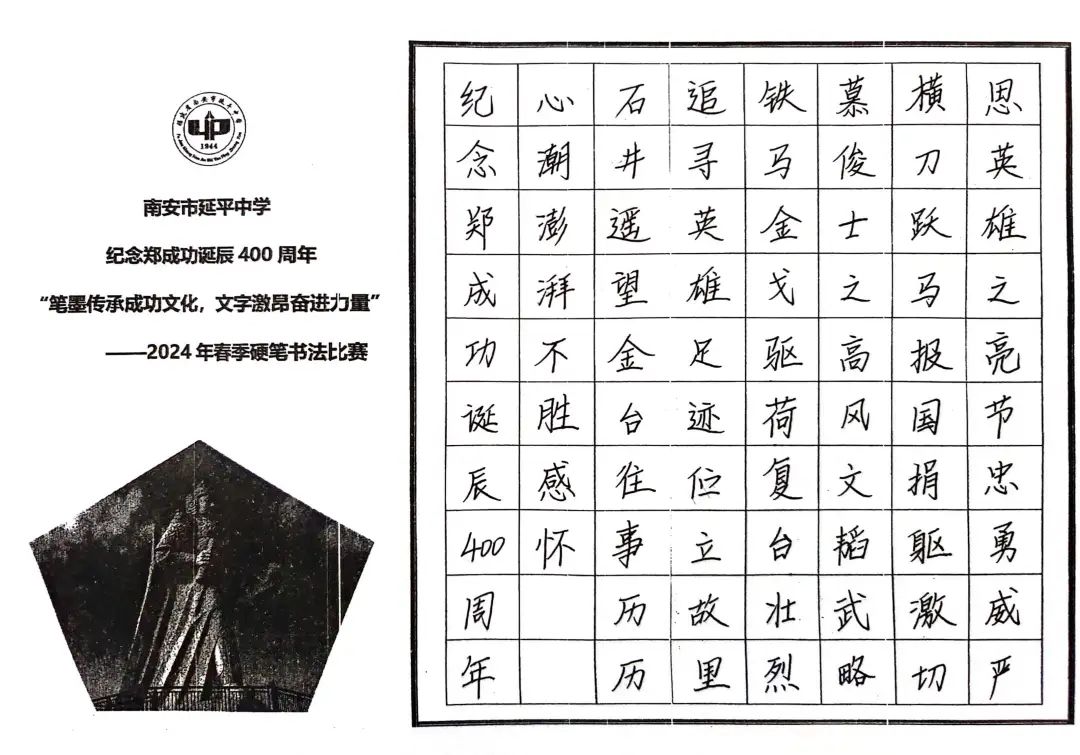 福建省南安市延平中学
1944
南安市延平中学
纪念郑成功诞辰400周年
“笔墨传承成功文化，文字激昂奋进力量”
——2024年春季硬笔书法比赛
思英雄之亮节忠勇威严
横刀跃马报国捐躯激切
慕俊士之高风文韬武略
铁马金戈驱荷复台壮烈
追寻英雄足迹位立故里
石井遥望金台往事历历
心潮澎湃不胜感怀
纪念郑成功诞辰400周年